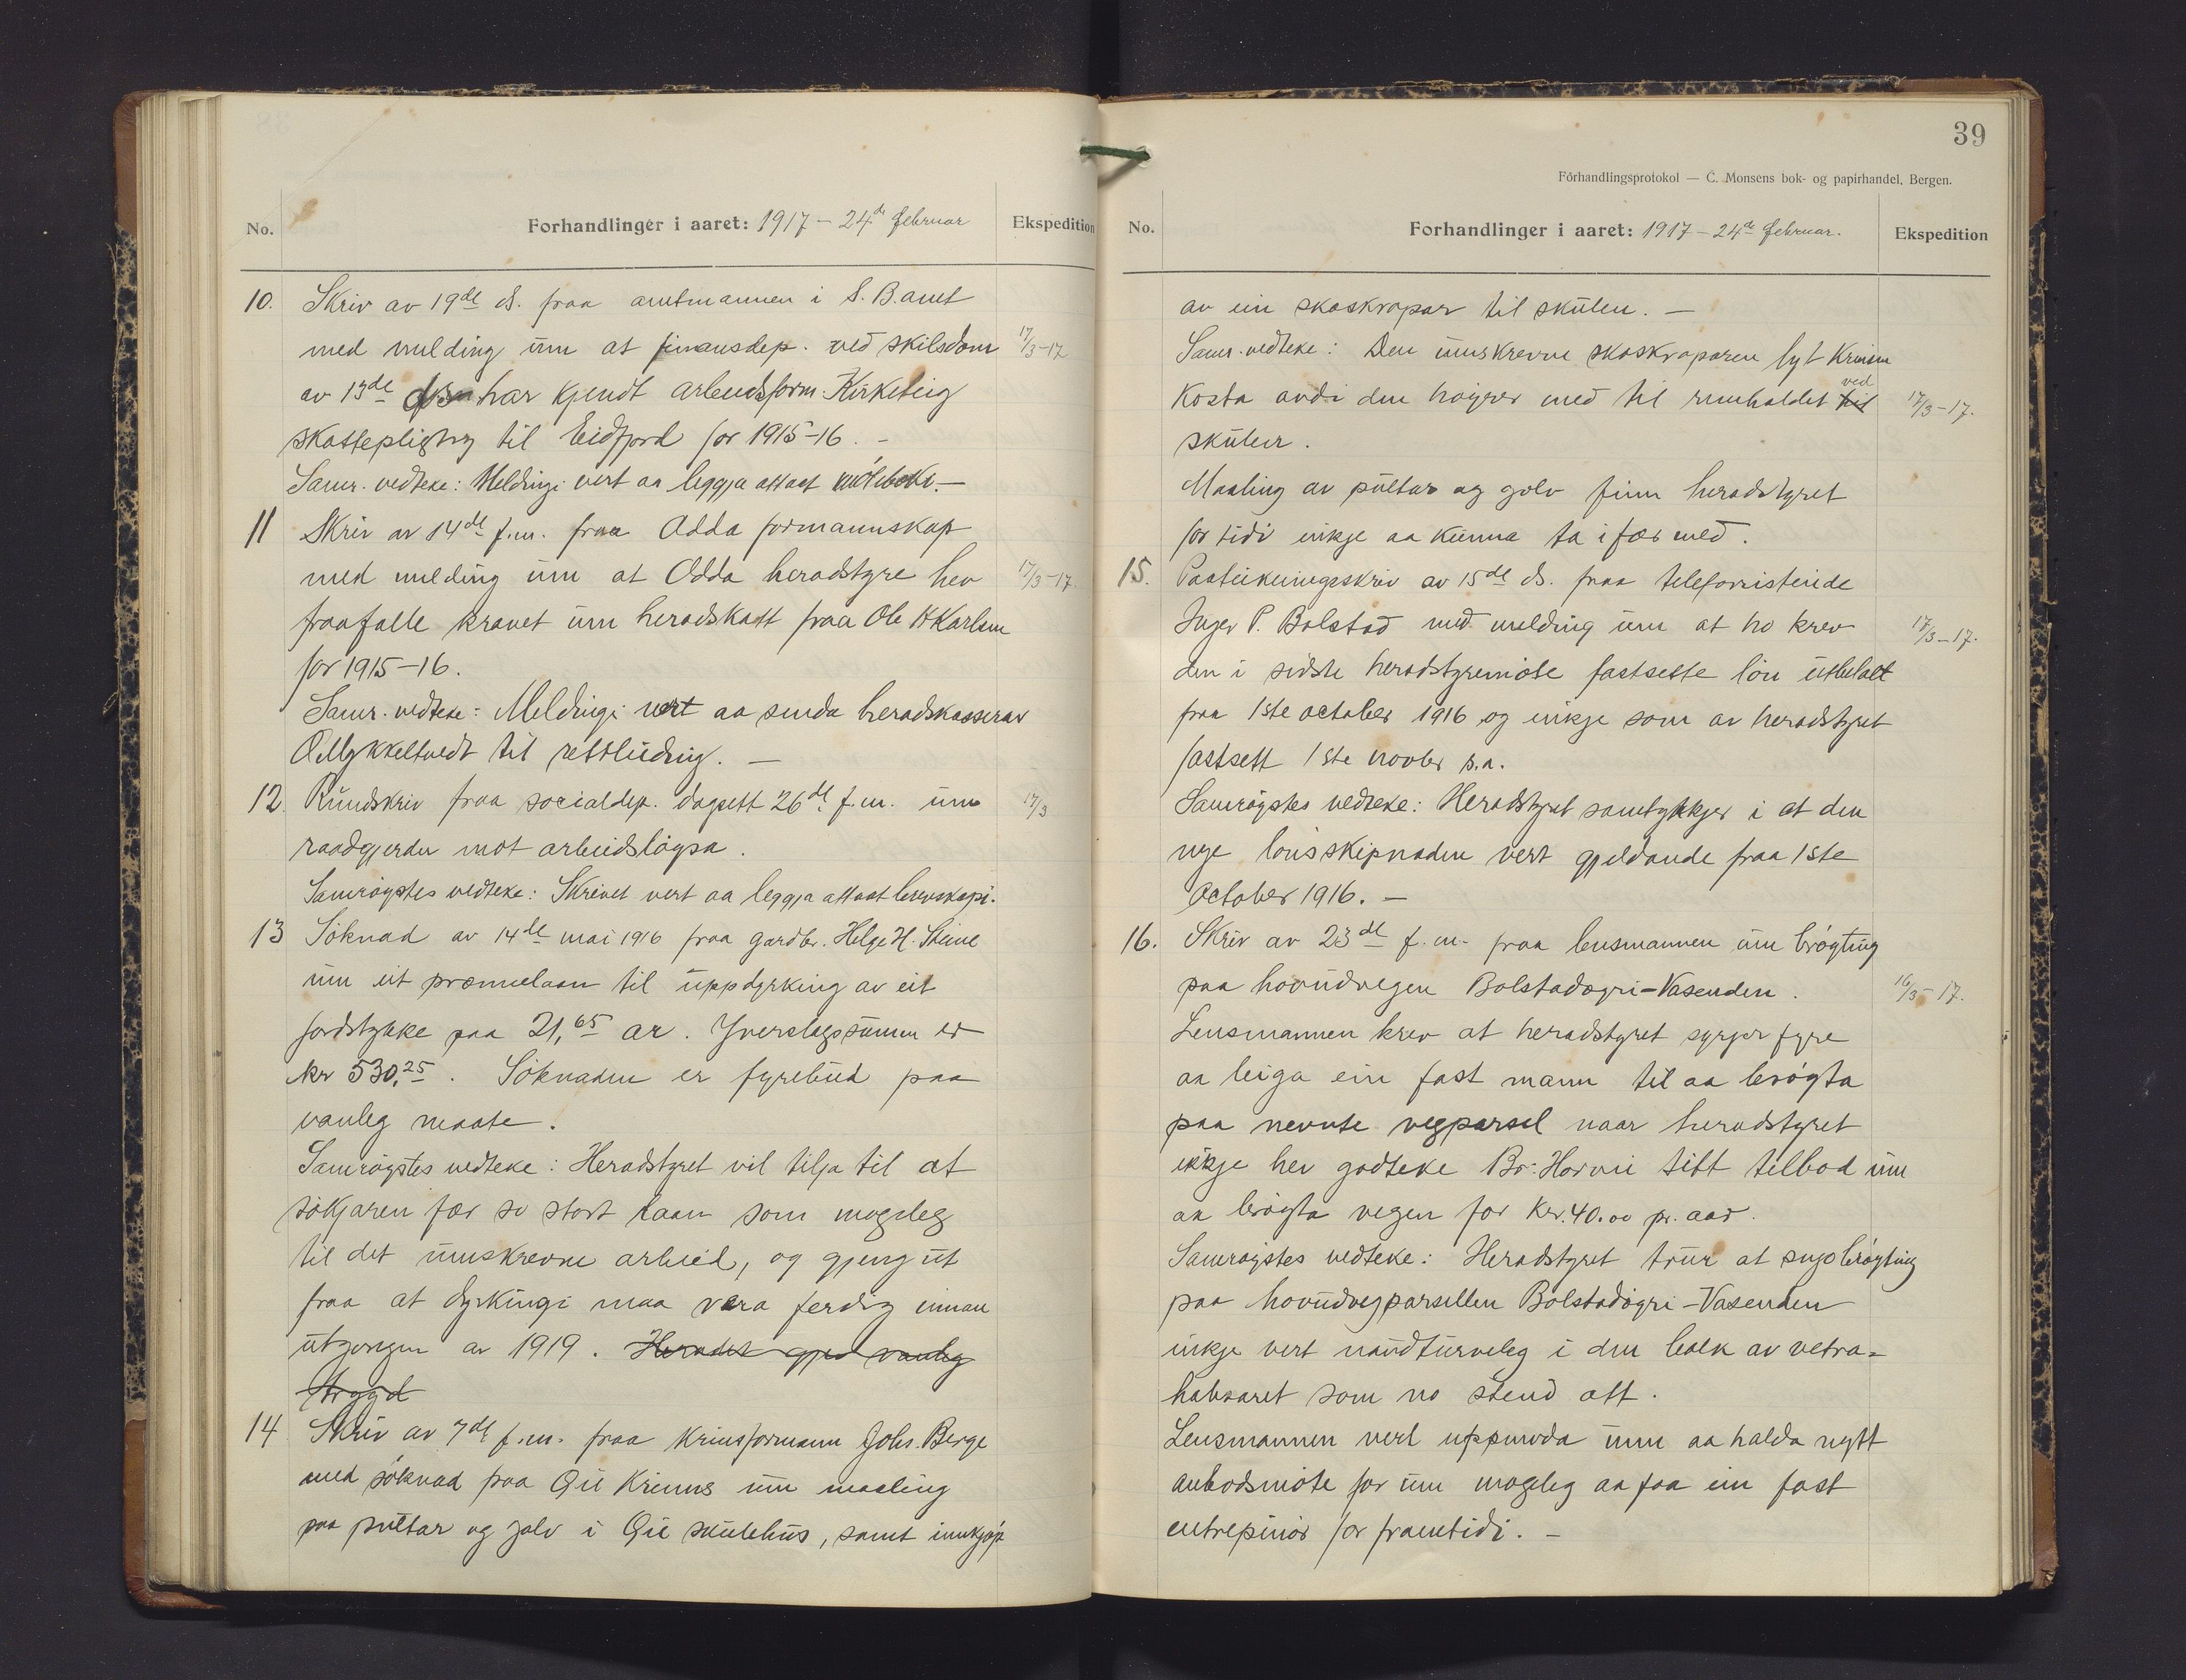 No.
Forhandlinger i aaret: 1917 – 24de februar
Ekspedition
10. Skriv av 19de ds. fraa amtmannen i S. B. amt
med melding um at finansdep. ved skilsdom 17/3-17
av 13de ds. har kjendt arbeidsform. Kirketeig
skattepligtig til Eidfjord for 1915-16. -
Samr. vedteke: Meldingi vert aa leggja attaat møteboki. —
11 Skriv av 14de f.m. fraa Odda formannskap
med melding um at Odda heradstyre hev 17/3-17.
fraafalle kravet um heradskatt fraa Ole K Karlsen
for 1915-16.
Samr. vedteke: Meldingi vert aa senda heradskasserar
O. Mykkeltvedt til rettleiding. —
12. Rundskriv fraa socialdep. dagsett 26de f.m. um 17/3
raadgjerder mot arbeidsløysa.
Samrøystes vedteke: Skrivet vert aa leggja attaat brevskapi.
13 Søknad av 14de mai 1916 fraa gardbr. Helge H. Skeine
um eit præmielaan til uppdyrking av eit
jordstykke paa 21,65 ar. Yverslagssumm er
kr 530,25. Søknaden er fyrebud paa
vanleg maate.
Samrøystes vedteke: Heradstyret vil tilja til at
søkjaren fær so stort laan som mogeleg
til det umskrevne arbeid, og gjeng ut
fraa at dyrkingi maa vera ferdig innan
utgongen av 1919. Heradet gjed vanleg
trygd
14 Skriv av 7de f.m. fraa krinsformann Johs. Berge
med søknad fraa Gil Krinns um maaling
paa pultar og golv i Gil skulehus, samt innkjøp
39
Forhandlingsprotokol — C. Monsens bok- og papirhandel, Bergen.
No.
Forhandlinger i aaret: 1917 – 24de februar.
Ekspedition
av ein skoskrapar til skulen. —
Samr. vedteke: Den umskrevne skoskraparen lyt Krinsen
ved
kosta avdi den høyrer med til reinhaldet til 17/3-17.
skulen.
Maaling av pultar og golv finn heradstyret
for tidi inkje aa kunna ta i fær med.
15. Paateikningsskriv av 15de ds. fraa telefonisteinde
Inger P. Bolstad med melding um at ho krev 17/3-17.
den i sidste heradstyremøte fastsette løn utbetalt
fraa 1ste october 1916 og inkje som av heradstyret
fastsett 1ste novbr s.a.
Samrøystes vedteke: Heradstyret samtykkjer i at den
nye lønsskipnaden vert gjeldande fraa 1ste
october 1916. —
16. Skriv av 23de f.m. fraa lensmannen um brøyting
paa hovudvegen Bolstadøyri-Vasenden. 16/3-17.
Lensmannen krev at heradstyret syrger fyre
aa leiga ein fast mann til aa brøyta
paa nevnte vegparsel naar heradstyret
ikkje hev godteke Br: Horvei sitt tilbod um
aa brøyta vegen for Kr. 40.00 pr. aar.
Samrøystes vedteke: Heradstyret trur at snjobrøyting
paa hovudvegparsellen Bolstadøyri-Vasenden
inkje vert naudturveleg i den bolk av vetra-
halvaaret som no stend att.
Lensmannen vert uppmoda um aa halda nytt
anbodsmøte for um mogeleg aa faa ein fast
entrepinør for framtidi. —